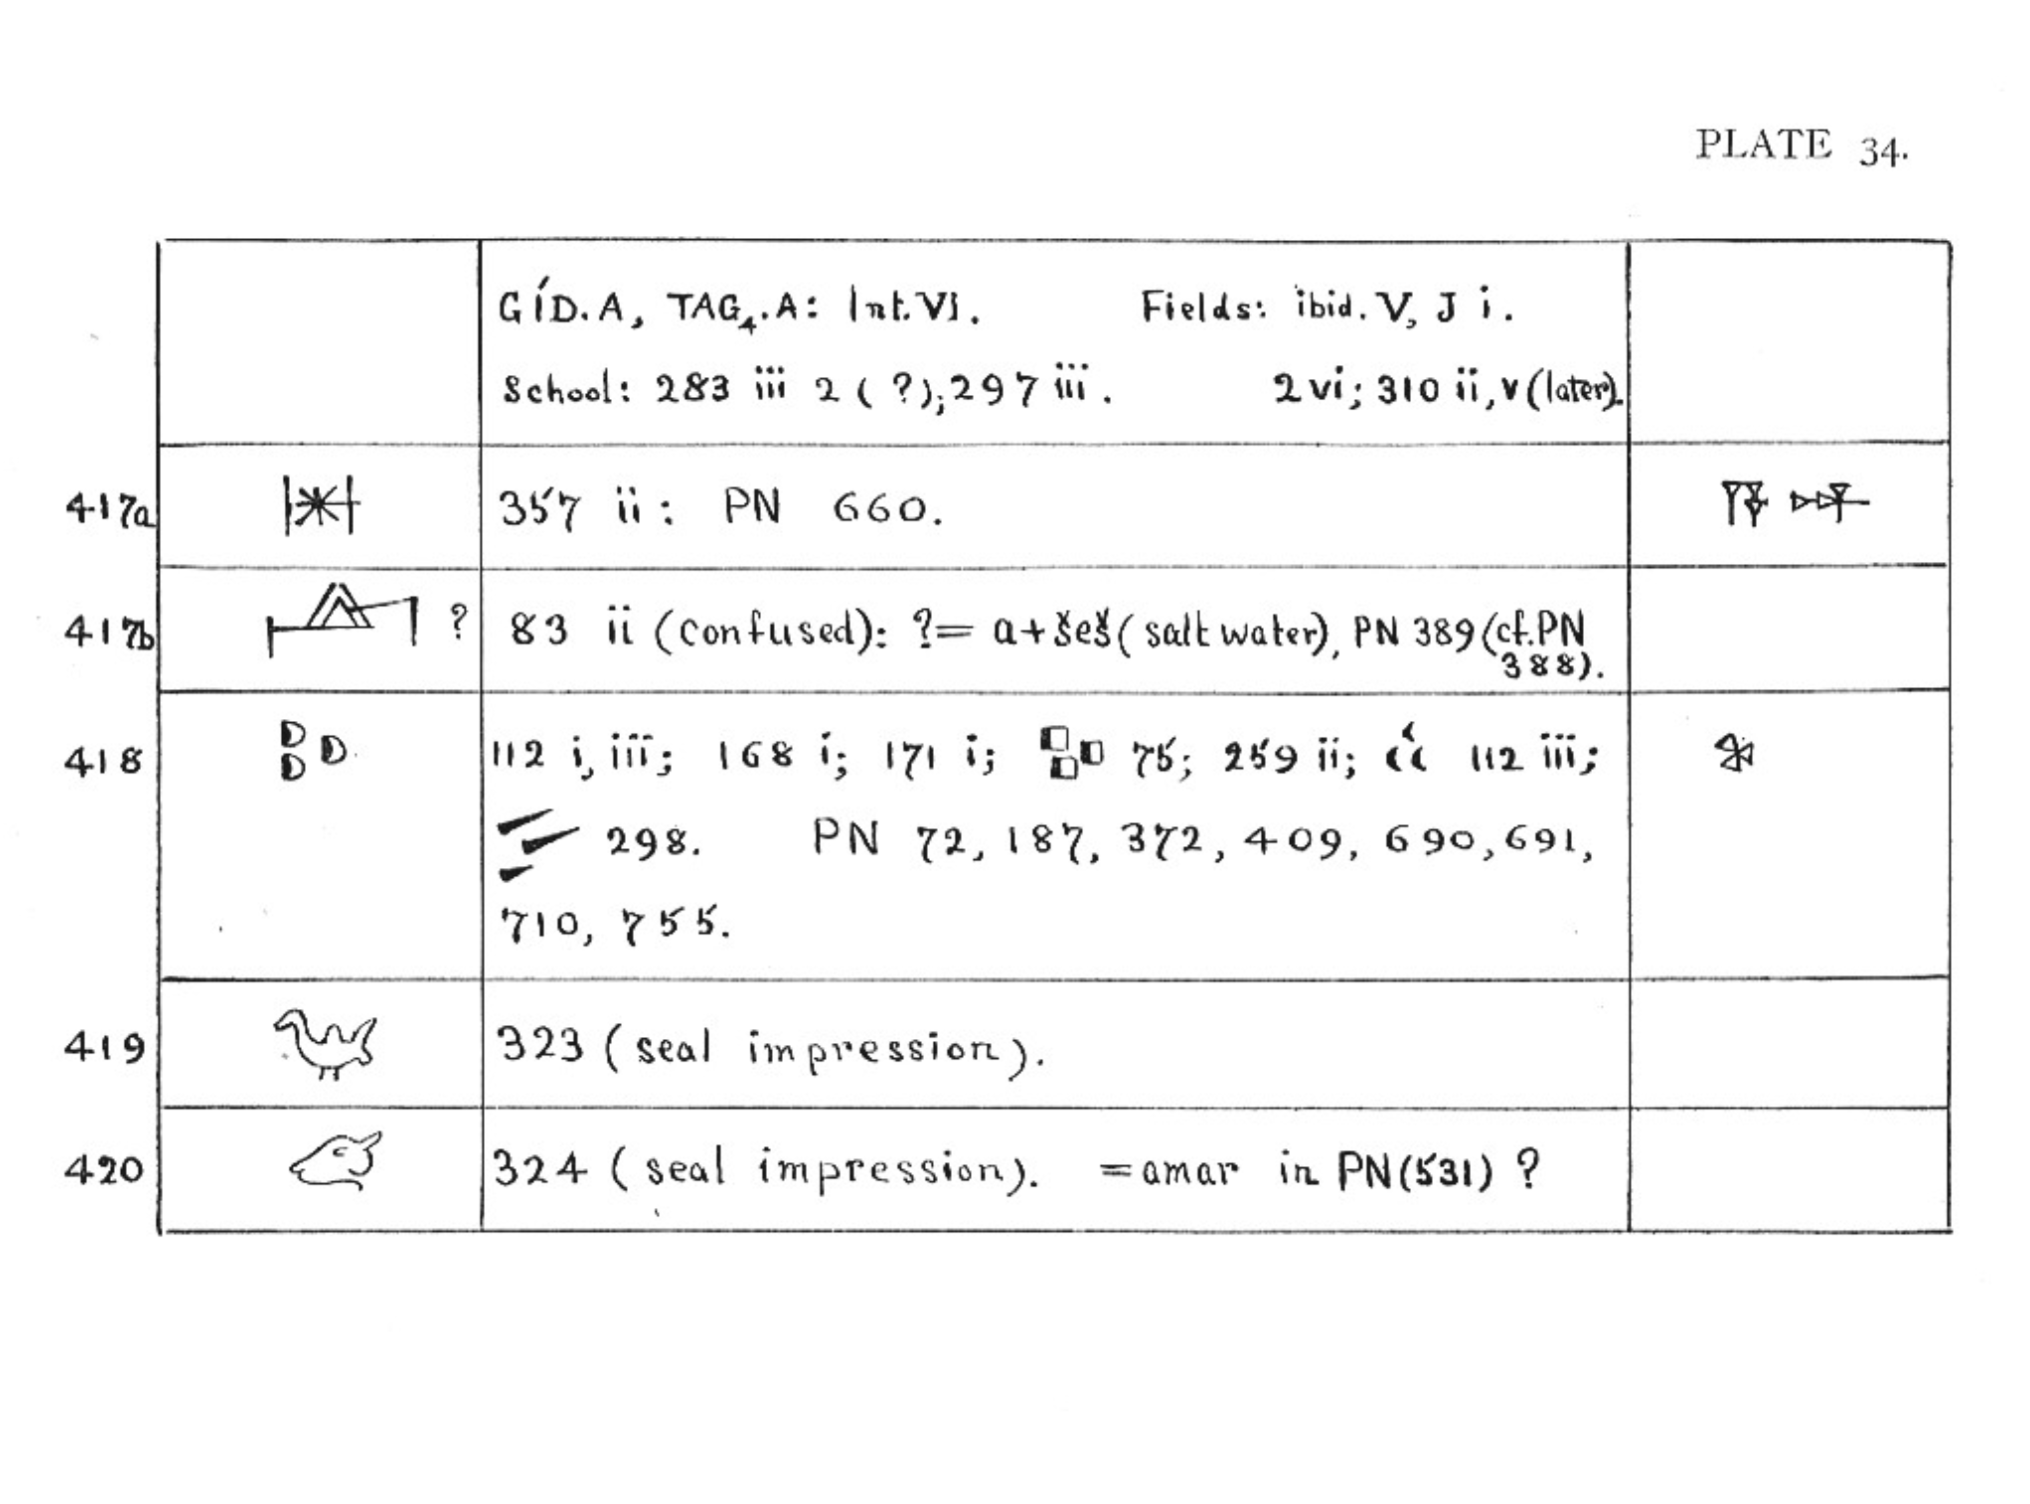 PLATE 34.
GÍD.A, TAG₄.A: Int.VI. Fields: ibid. V, J i.
School: 283 iii 2 (?); 297 iii. 2 vi; 310 ii, v (later).
417a 357 ii: PN 660. 𒀀𒀭
417b ? 83 ii (confused): ?= a+šeš (salt water), PN 389 (cf. PN
388).
418 112 i, iii; 168 i; 171 i; 75; 259 ii; 112 iii;
298. PN 72, 187, 372, 409, 690, 691,
710, 755.
419 323 (seal impression).
420 324 (seal impression). =amar in PN(531) ?